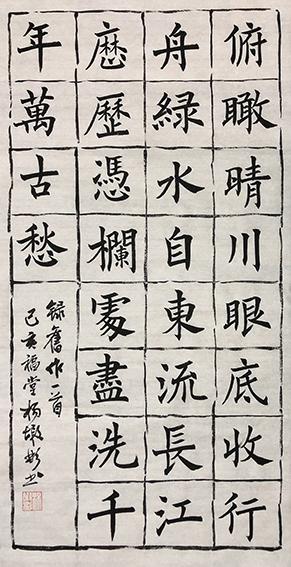 俯瞰晴川眼底收行
舟綠水自東流長江
歷歷憑欄處盡洗千
年萬古愁
錄舊作一首
己亥福堂楊墩彬書